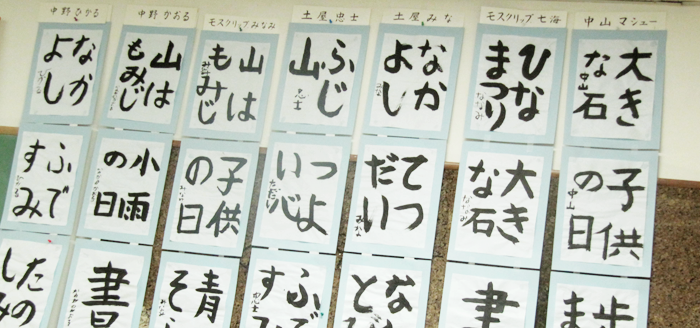 中野ひかる
中野かおる
モスクリップみなみ
土屋忠士
土屋みな
モスクリップ七海
中山マシュー
なか
よし
山は
もみじ
山は
もみじ
ふじ
山
忠士
なか
よし
ひな
まつり
ななみ
大き
な石
中山
ふで
すみ
小雨
の日
子供
の日
つよ
い心
てつ
だい
大き
な石
子供
の日
中山
たの
しみ
書
青
そら
ふで
すみ
忠士
な
と
書
歩